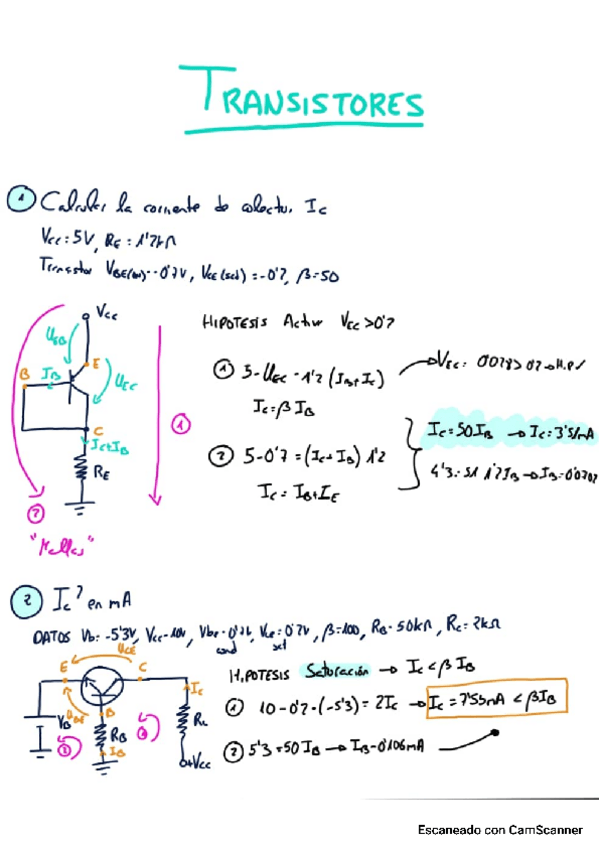 TRANSISTORES
1 Calcular la corriente de colector Ic
Vcc = 5V, RE = 1'2kΩ
Transistor VBE(on) = -0'7V, VCE(sat) = -0'2, β=50
Vcc
UEB
E
IB
B
UEC
C
Ic+IB
RE
1
2
"Mallas"
HIPOTESIS Activa VEC > 0'2
1 5 - UEC = 1'2 (IB + Ic)
Ic = β IB
VEC:
2 5 - 0'7 = (Ic + IB) 1'2
Ic = IB + IE
Ic = 50 IB → Ic = 3'51mA
4'3 = 51 1'2 IB → IB = 0'0702
2 Ic? en mA
DATOS Vb = -5'3V, Vcc = 10V, Vbe = 0'7V, Vce = 0'2V, β=100, RB = 50kΩ, Rc = 2kΩ
cond sat
UCE
E
C
Ic
VB
UBE
B
RB
IB
Rc
+Vcc
HIPOTESIS Saturación → Ic < β IB
1 10 - 0'2 - (-5'3) = 2Ic → Ic = 7'55mA < βIB
2 5'3 = 50 IB → IB = 0'106mA
Escaneado con CamScanner